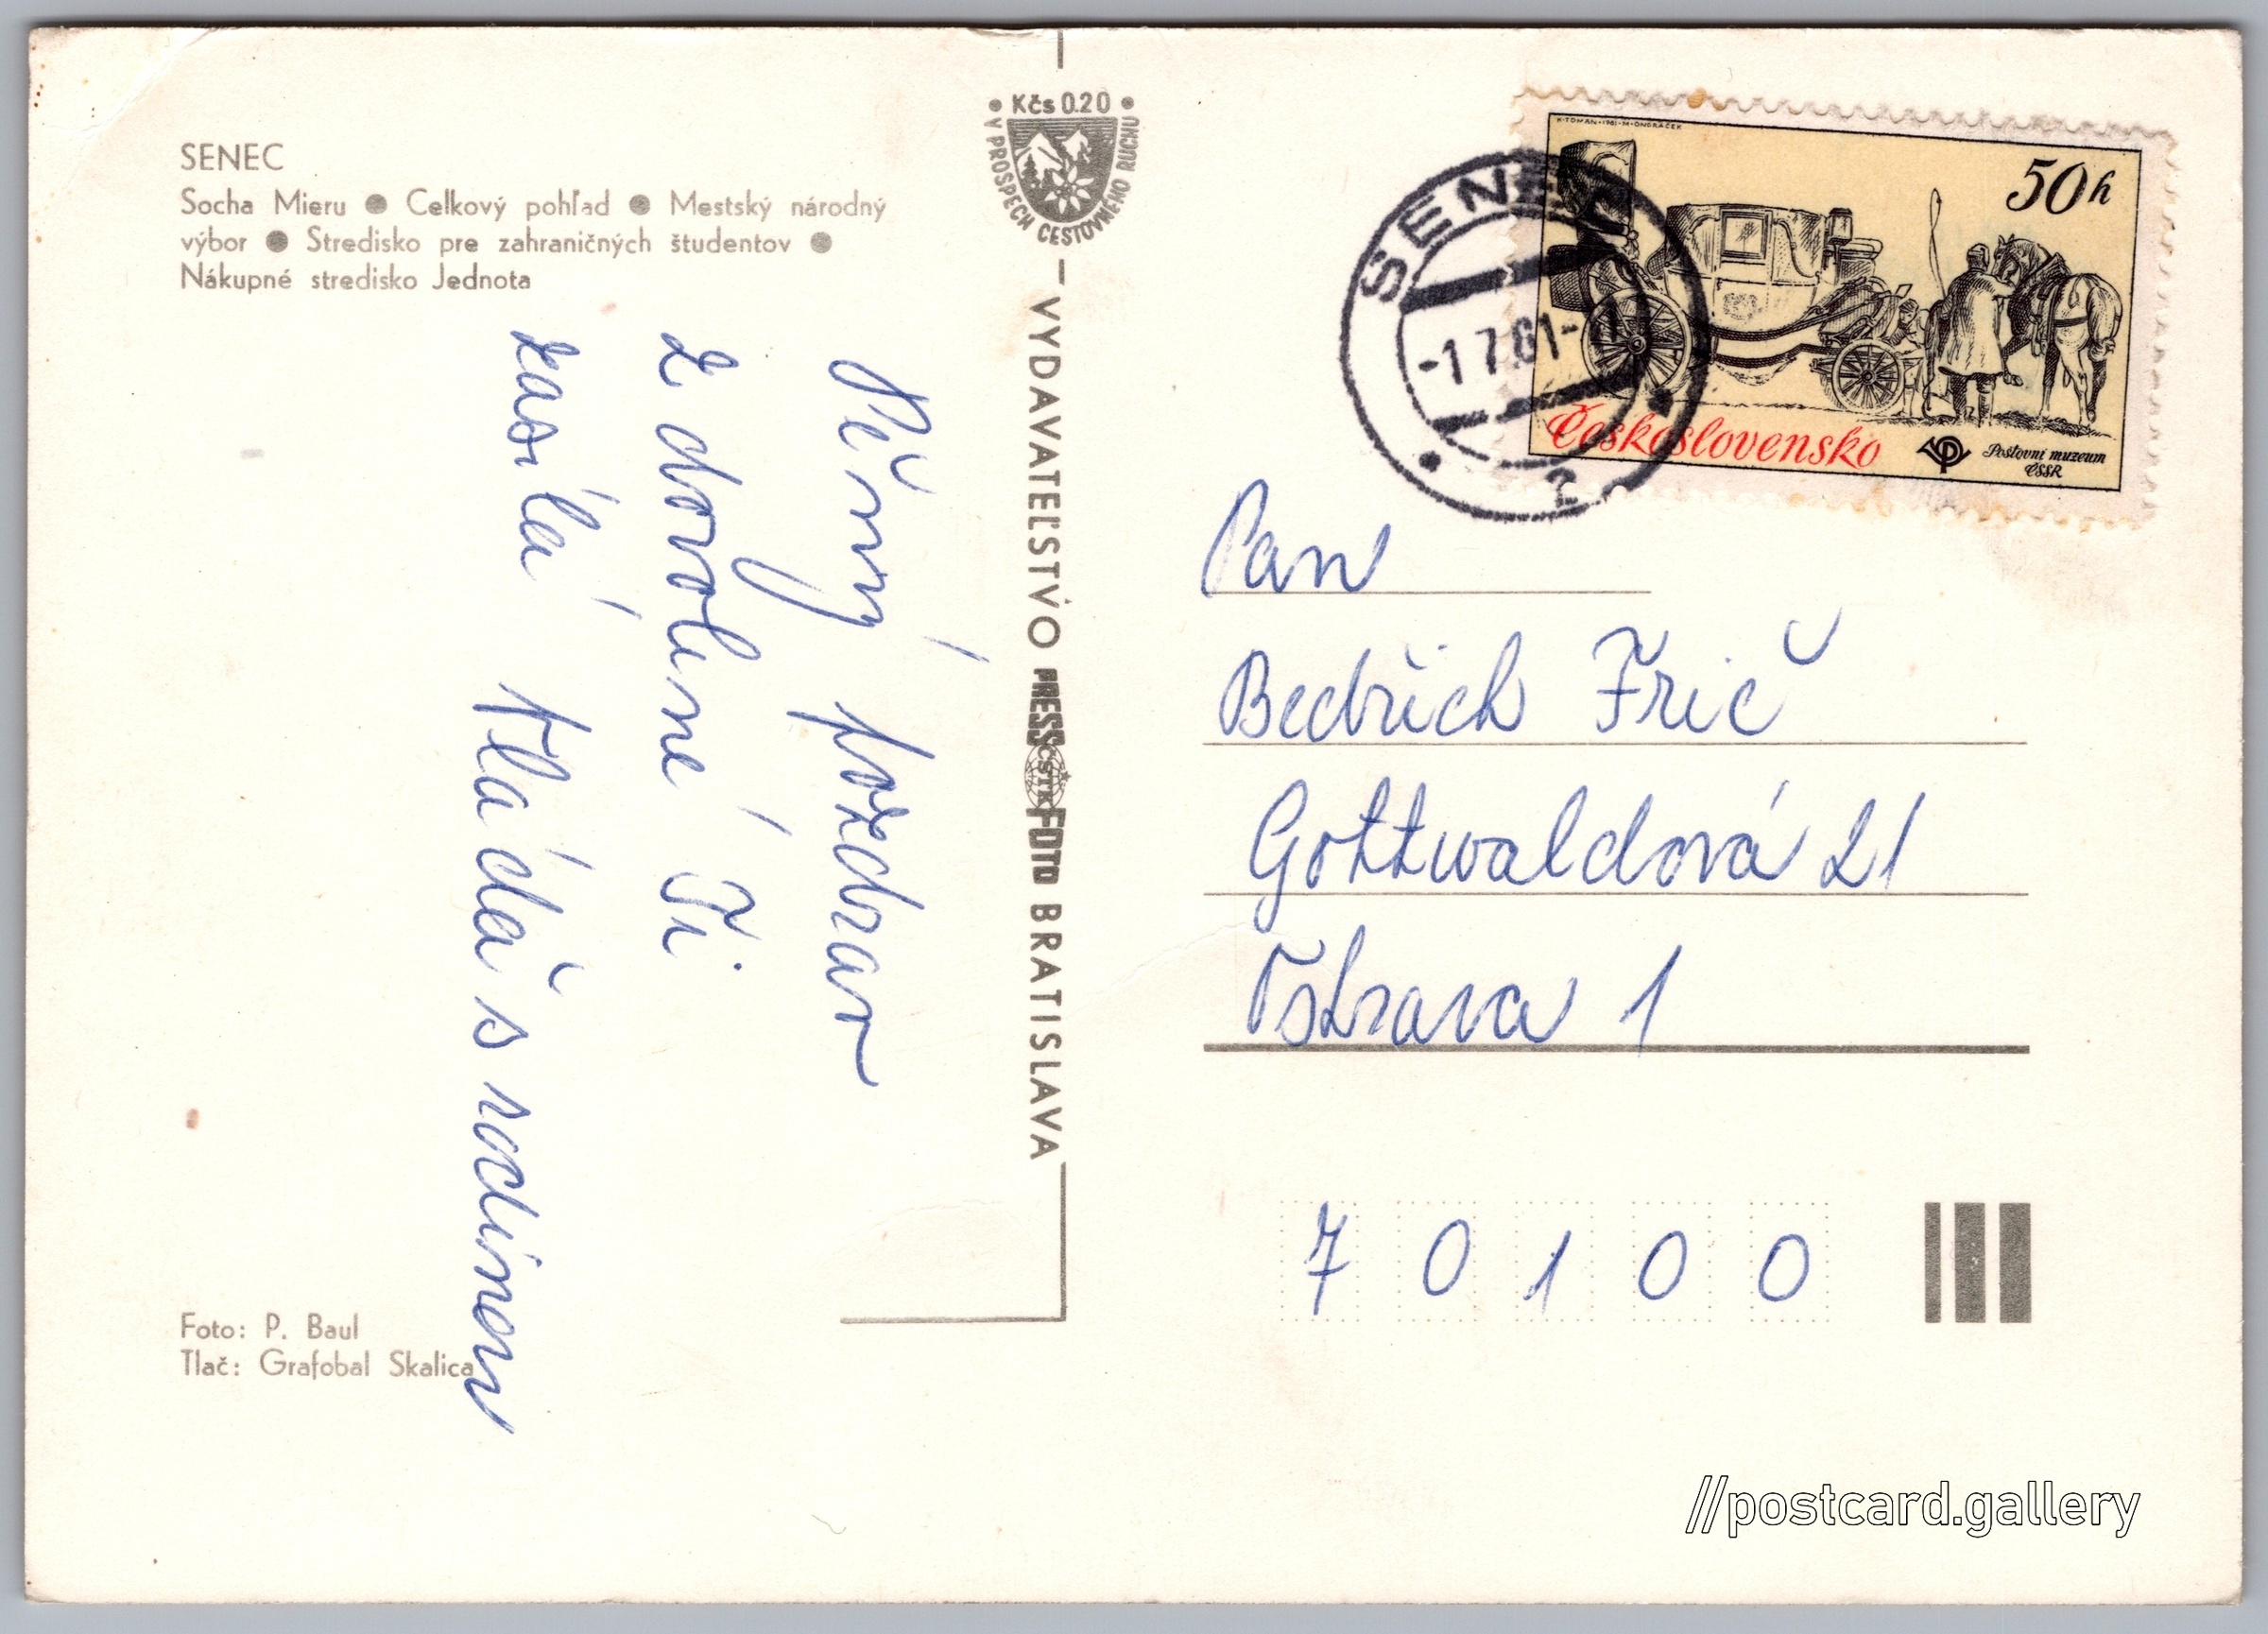 SENEC
Socha Mieru ● Celkový pohľad ● Mestský národný
výbor ● Stredisko pre zahraničných študentov ●
Nákupné stredisko Jednota
Pěkný pozdrav
z dovolené Ti
zasílá Hladá s rodinou
Foto: P. Baul
Tlač: Grafobal Skalica
• Kčs 0.20 •
V PROSPECH CESTOVNÉHO RUCHU
VYDAVATEĽSTVO PRESS ČSTK FOTO BRATISLAVA
K. TOMAN • 1981 • M. ONDRÁČEK
50h
Československo
Poštovní muzeum
ČSSR
SENEC
-1.7.81-
2
Pan
Bedřich Frič
Gottwaldová 21
Ostrava 1
7 0 1 0 0
//postcard.gallery